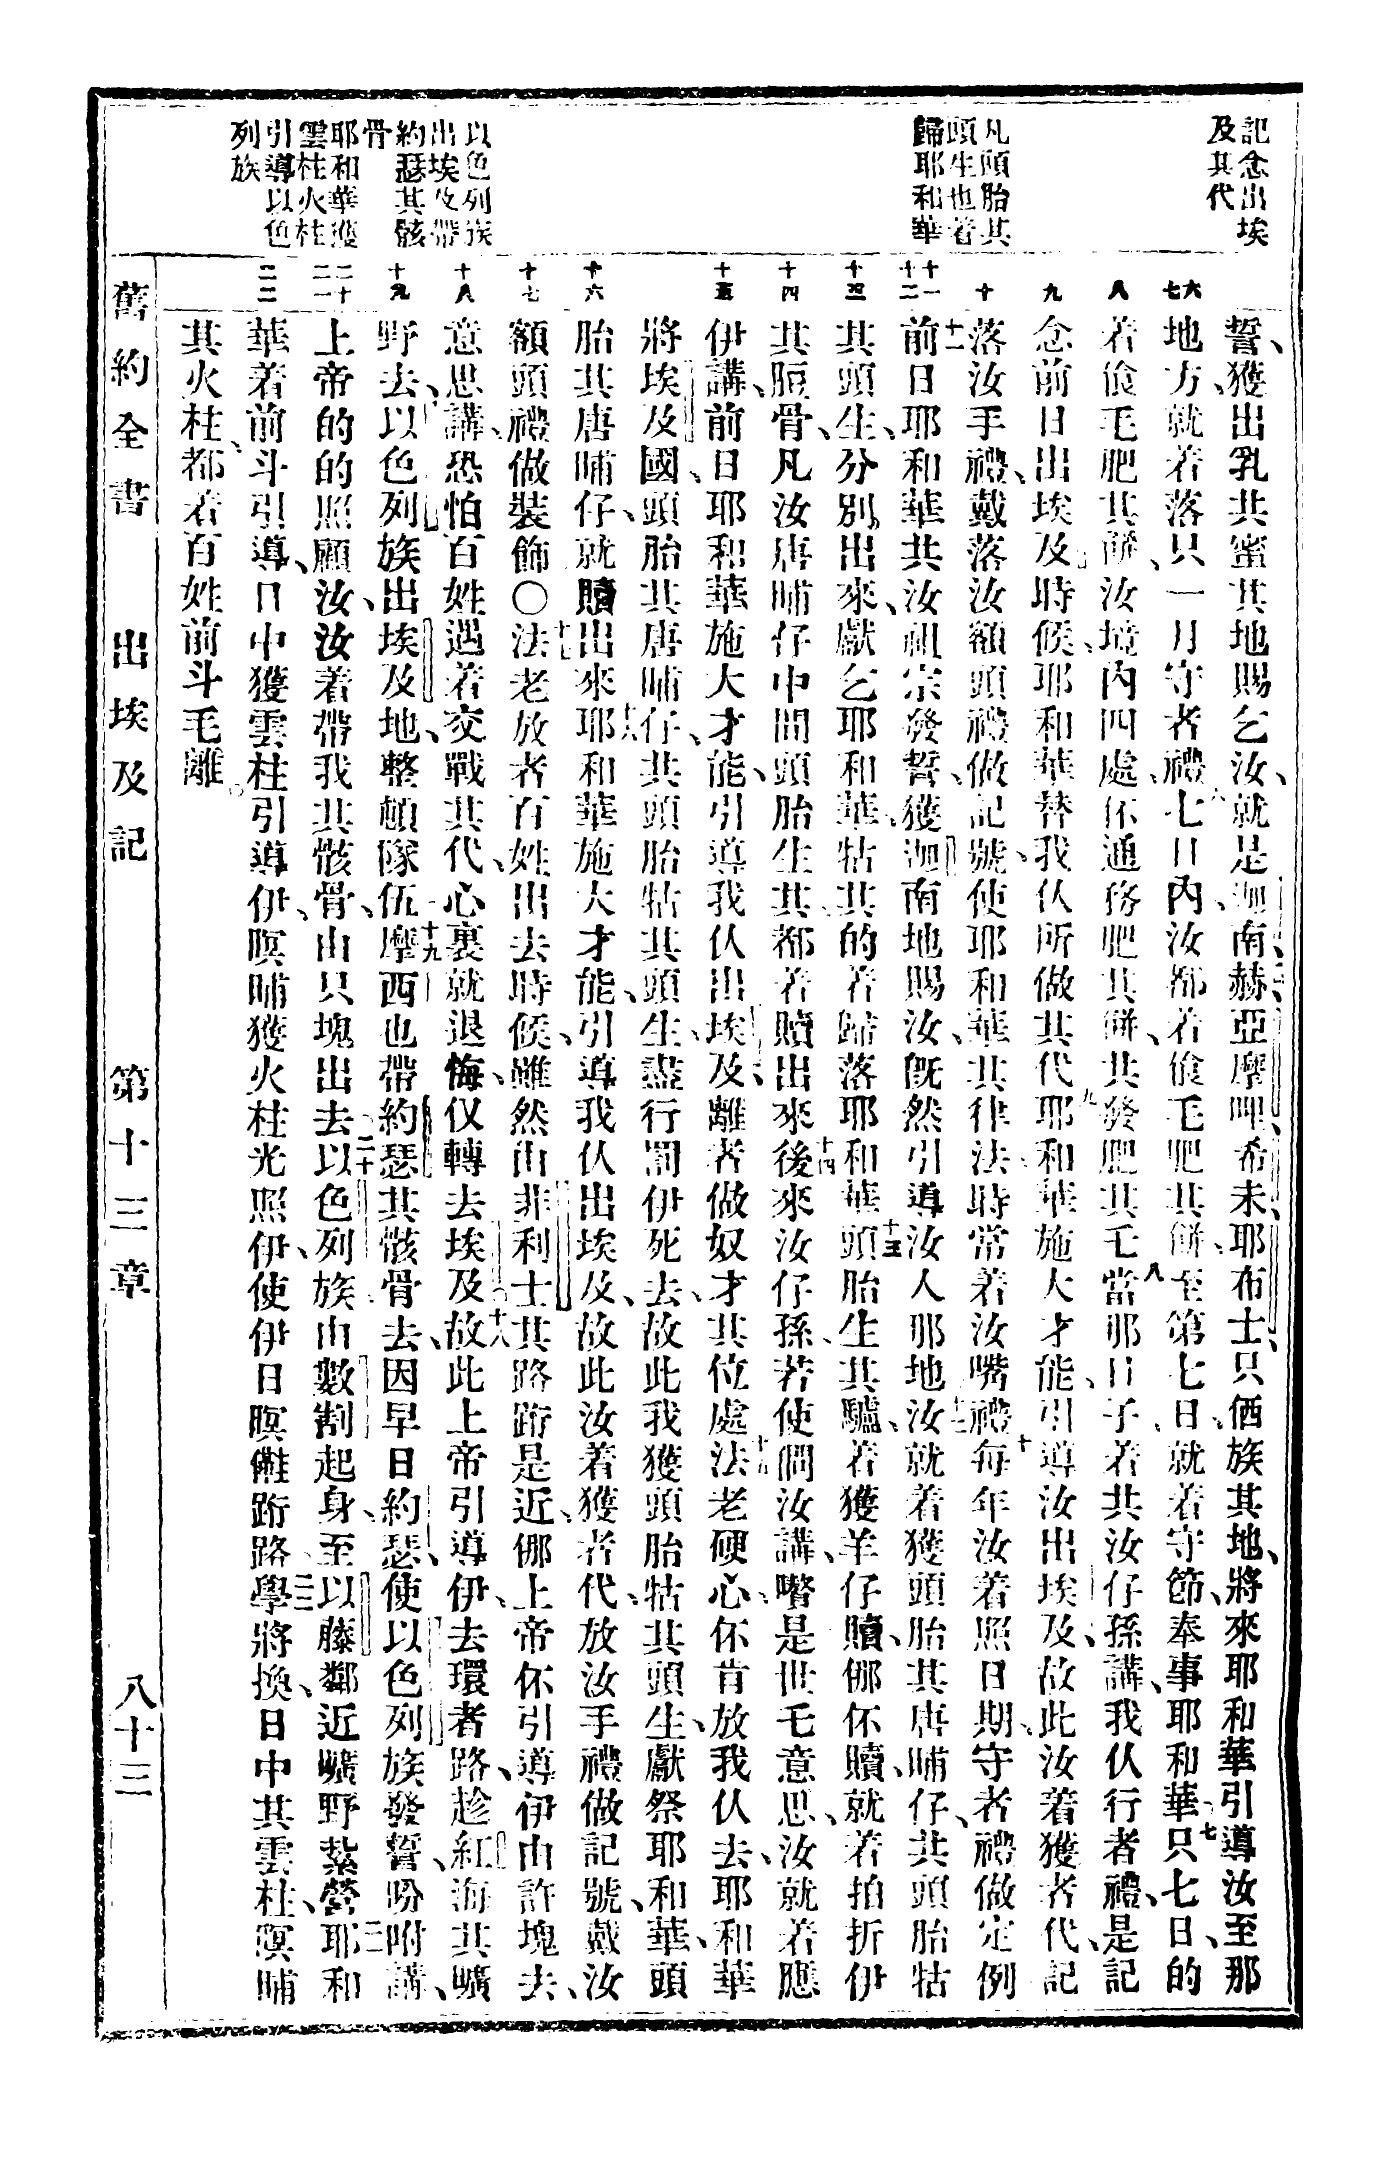 記念出埃
及其代
凡頭胎其
頭生也着
歸耶和華
以色列族
出埃及帶
約瑟其骸
骨
耶和華獲
雲柱火柱
引導以色
列族
六
七
八
九
十
十一
十二
十三
十四
十五
十六
十七
十八
十九
二十
二一
二二
誓、獲出乳共蜜其地賜乞汝、就是迦南赫亞摩哩希未耶布士、只値族其地、將來耶和華引導汝至那
地方、就着落只一月守者禮、七日內、汝都着食毛肥其餅、至第七日、就着守節、奉事耶和華只七日的
若食毛肥其餅、汝境內四處伓通務肥其餅、共發肥其乇當那日子、着共汝仔孫講、我仈行者禮、是記
念前日出埃及時候、耶和華替我仈所做其代耶和華施大才能、引導汝出埃及、故此汝着獲者代、記
落汝手禮、戴落汝額頭禮做記號、使耶和華其律法、時常着汝嘴禮每年汝着照日期、守者禮做定例
前日耶和華共汝祖宗發誓、獲迦南地賜汝、旣然引導汝人那地、汝就着獲頭胎其唐晡仔、共頭胎牯
其頭生、分別出來、獻乞耶和華、牯其的着歸落耶和華頭胎生其驢、着獲羊仔贖、倻伓贖、就着拍折伊
其脰骨、凡汝唐晡仔中間頭胎生其、都着贖出來後來汝仔孫、若使問汝講、嘴是世乇意思、汝就着應
伊講、前日耶和華施大才能、引導我仈出埃及、離者做奴才其位處法老硬心、伓肯放我仈去、耶和華
將埃及國、頭胎其唐晡仔、共頭胎牯其頭生、盡行罰伊死去、故此我獲頭胎牯其頭生、獻祭耶和華、頭
胎其唐晡仔、就贖出來耶和華施大才能、引導我仈出埃及、故此汝着獲者代、放汝手禮做記號、戴汝
額頭禮做裝飾〇法老放者百姓出去時候、雖然由非利士其路跲是近、倻上帝伓引導伊由許塊去、
意思講、恐怕百姓遇着交戰其代、心裏就退悔、仅轉去埃及故此上帝引導伊、去環者路、趁紅海其曠
野去、以色列族出埃及地、整頓隊伍摩西也帶約瑟其骸骨去、因早日約瑟、使以色列族發誓、吩咐講、
上帝的的照顧汝、汝着帶我其骸骨、由只塊出去以色列族由數割起身、至以藤鄰近曠野紮營、耶和
華着前斗引導、日中獲雲柱引導伊、暝晡獲火柱光照伊、使伊日暝㑚跲路、學將換、日中其雲柱、暝晡
其火柱、都着百姓前斗毛離。
舊約全書　出埃及記　第十三章　八十三